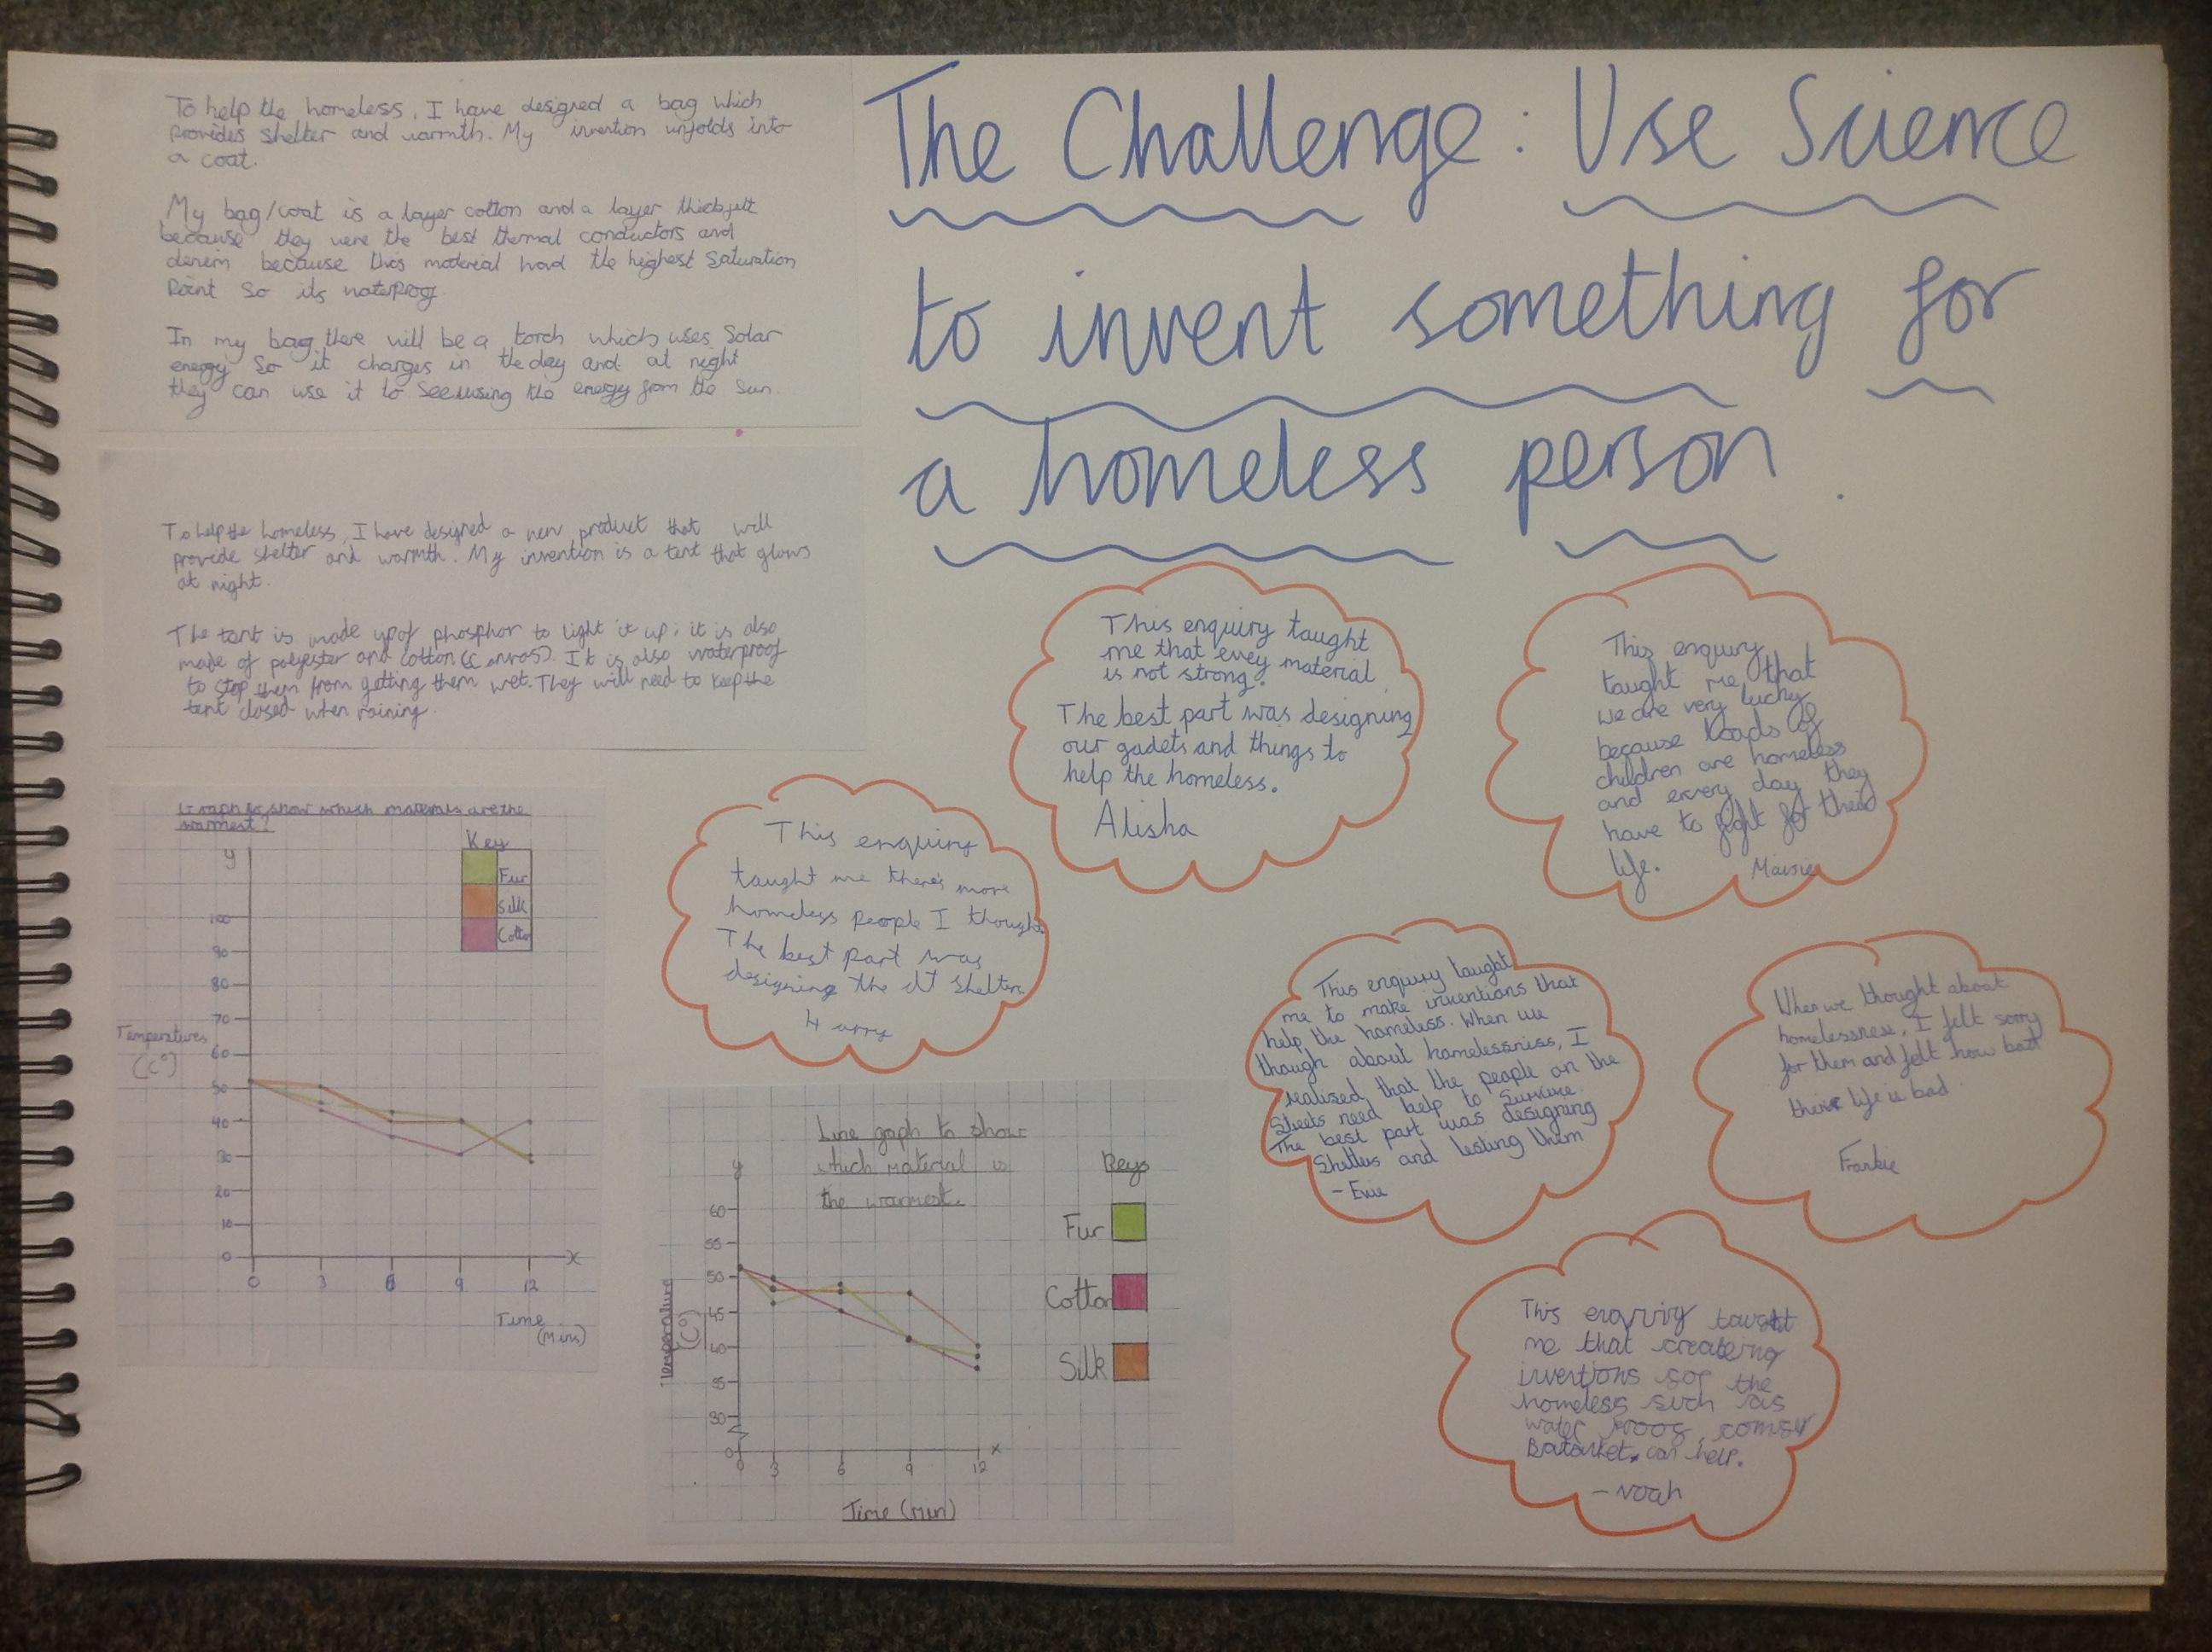 To help the homeless, I have designed a bag which
provides shelter and warmth. My invention unfolds into
a coat.
My bag/coat is a layer cotton and a layer thick felt
because they were the best thermal conductors and
denim because this material had the highest saturation
point so its waterproof
In my bag there will be a torch which uses solar
energy so it charges in the day and at night
they can use it to see using the energy from the sun.
To help the homeless, I have designed a new product that will
provide shelter and warmth. My invention is a tent that glows
at night.
The tent is made up of phosphor to light it up; it is also
made of polyester and cotton (canvas). It is also waterproof
to stop them from getting them wet. They will need to keep the
tent closed when raining.
Graph to show which materials are the
warmest!
Key
Fur
Silk
Cotton
y
100
90
80
70
Temperatures
(C°)
60
50
40
30
20
10
0
x
0 3 6 9 12
Time
(min)
The Challenge: Use Science
to invent something for
a homeless person.
This enquiry taught
me that evey material
is not strong.
The best part was designing
our gadets and things to
help the homeless.
Alisha
This enquiry
taught me that
we are very lucky
because loads of
children are homeless
and every day they
have to fight for their
life. Maisie
This enquiry
taught me there's more
homeless people I thought
The best part was
designing the DT shelters
Harry
This enquiry taught
me to make inventions that
help the homeless. When we
though about homelessness, I
realised that the people on the
streets need help to survive.
The best part was designing
shelters and testing them
- Evie
When we thought about
homelessness, I felt sorry
for them and felt how bad
their life is bad
Frankie
Line graph to show
which material is
the warmest.
Keys
Fur
Cotton
Silk
y
60
55
50
45
40
35
30
0
Temperature
(C°)
x
0 3 6 9 12
Time (min)
This enquiry taught
me that createing
inventions for the
homeless such as
water proof, comfy
can help.
- Noah